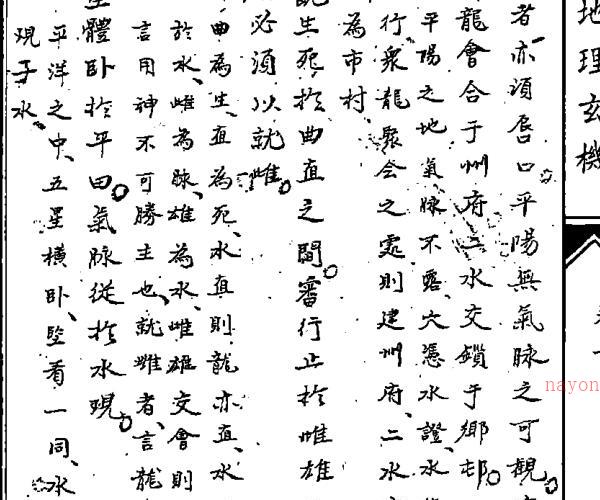 地理玄機
卷一
者亦須唇口平陽無氣脉之可觀
龍會合于州府二水交鎖于鄉邨
平陽之地氣脉不露穴憑水證水
行衆龍聚会之處則建州府二水
為市村
生死於曲直之間審行止於雌雄
必須以就雌
曲為生直為死水直則龍亦直水
於水雌為脉雄為水雌雄交會則
言用神不可勝主也就雌者言龍
體卧於平田氣脉從於水現
平洋之中五星橫卧竪看一同水
現于水
nayon